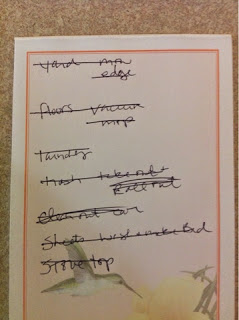 yard mow
edge
floors vacuum
mop
laundry
trash take out
Roll out
Clean out car
Sheets wash & make Bed
Stove top